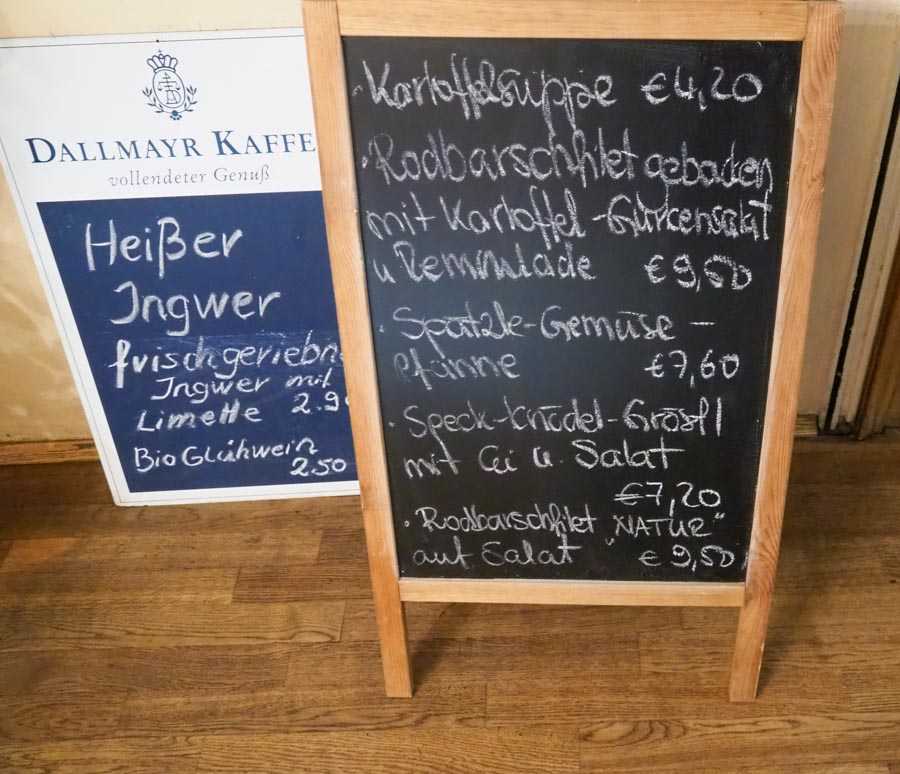 DALLMAYR KAFFE
vollendeter Genuß
Heißer
Ingwer
frischgeriebn
Ingwer mit
Limette 2.9
BioGlühwein
2.50
· Kartoffelsuppe €4,20
· Rodbarschfilet gebacken
mit Kartoffel-Gurkensalat
u Remmulade €9,50
· Spätzle-Gemüse-
pfanne €7,60
· Speck-Knödel-Gröstl
mit Ei u. Salat
€7,20
· Rodbarschfilet "NATUR"
auf Salat €9,50